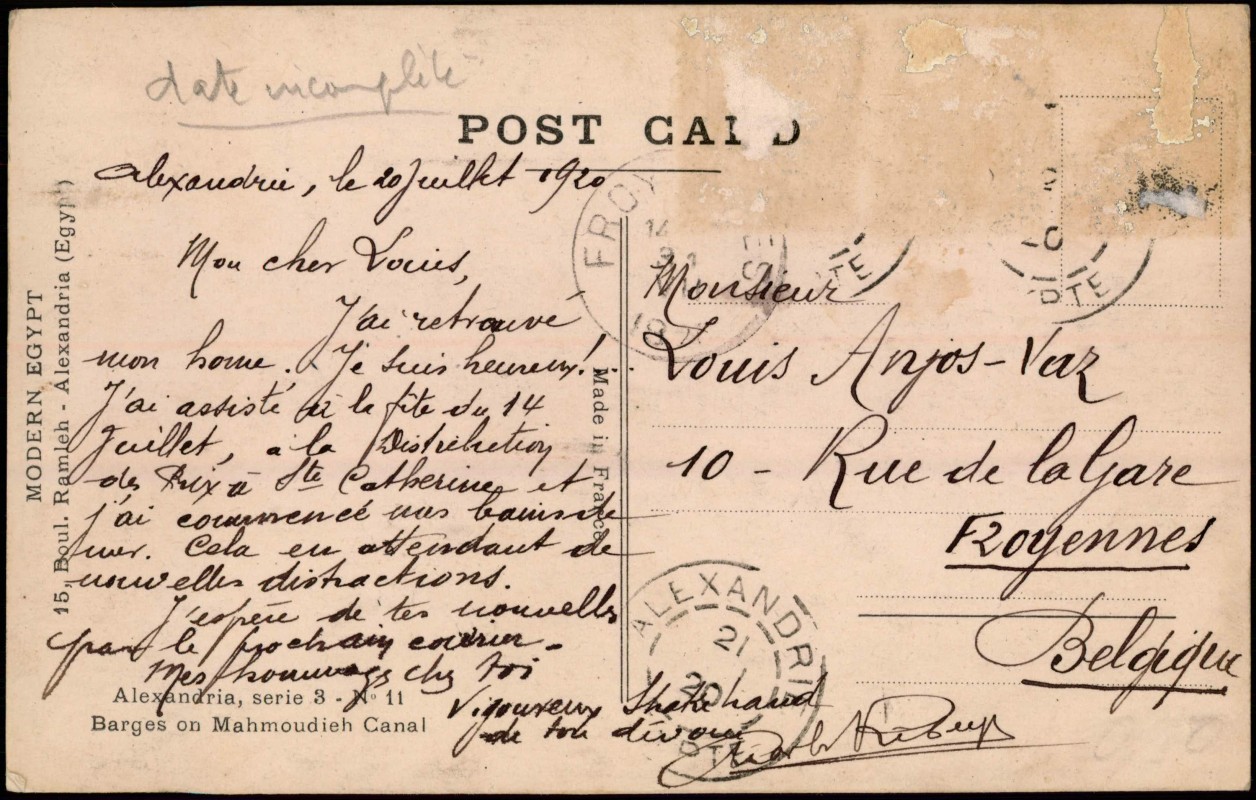 date incomplète
POST CARD
Alexandrie, le 20 Juillet 1920
Mon cher Louis,
J'ai retrouvé
mon home. Je suis heureux!...
J'ai assisté à la fête du 14
Juillet, à la Distribution
des Prix à Ste Catherine et
j'ai commencé mes bains de
mer. Cela en attendant de
nouvelles distractions.
J'espère de tes nouvelles
par le prochain courrier.
Mes hommages chez toi
Vigoureux Shakehand
de ton dévoué
Monsieur
Louis Anjos-Vaz
10 - Rue de la Gare
Froyennes
Belgique
MODERN EGYPT
15, Boul. Ramleh - Alexandria (Egypt)
Made in France
Alexandria, serie 3 - No 11
Barges on Mahmoudieh Canal
FROY
14
ALEXANDRIE
21
20
PTE
PTE